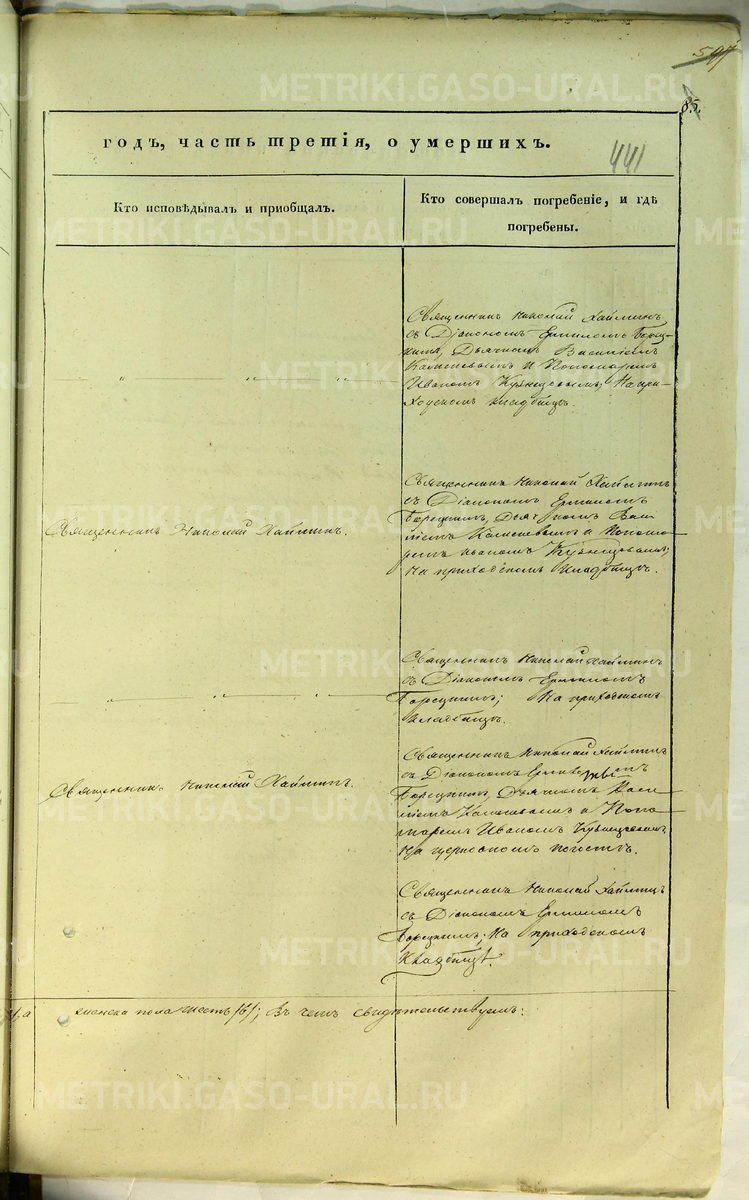 597
85.
годъ, часть третія, о умершихъ.
441
Кто исповѣдывалъ и приобщалъ.
Кто совершалъ погребеніе, и гдѣ
погребены.
Священникъ Николай Хайминъ
съ Діакономъ
Дьячкомъ Василіемъ
и Пономаремъ
Иваномъ Кузнецовымъ; На при-
ходскомъ кладбищѣ.
Священникъ Николай Хайминъ.
Священникъ Николай Хайминъ
съ Діакономъ
Борецкимъ, Дьячкомъ Васи-
ліемъ и Понома-
ремъ Иваномъ Кузнецовымъ;
На приходскомъ кладбищѣ.
Священникъ Николай Хайминъ
съ Діакономъ
Борецкимъ; На приходскомъ
кладбищѣ.
Священникъ Николай Хайминъ.
Священникъ Николай Хайминъ
съ Діакономъ
Борецкимъ, Дьячкомъ Васи-
ліемъ и Поно-
маремъ Иваномъ Кузнецовымъ
На церковномъ погостѣ.
Священникъ Николай Хайминъ
съ Діакономъ
Борецкимъ; На приходскомъ
Кладбищѣ.
женска пола шесть /6/; Въ чемъ свидѣтельствуемъ:
METRIKI.GASO-URAL.RU